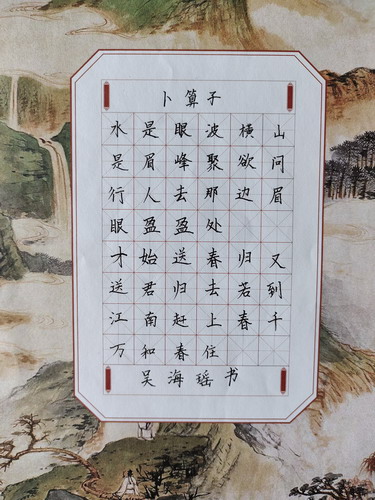 卜算子
水是眼波横山
是眉峰聚欲问
行人去那边眉
眼盈盈处
才始送春归又
送君归去若到
江南赶上春千
万和春住
吴海瑶书